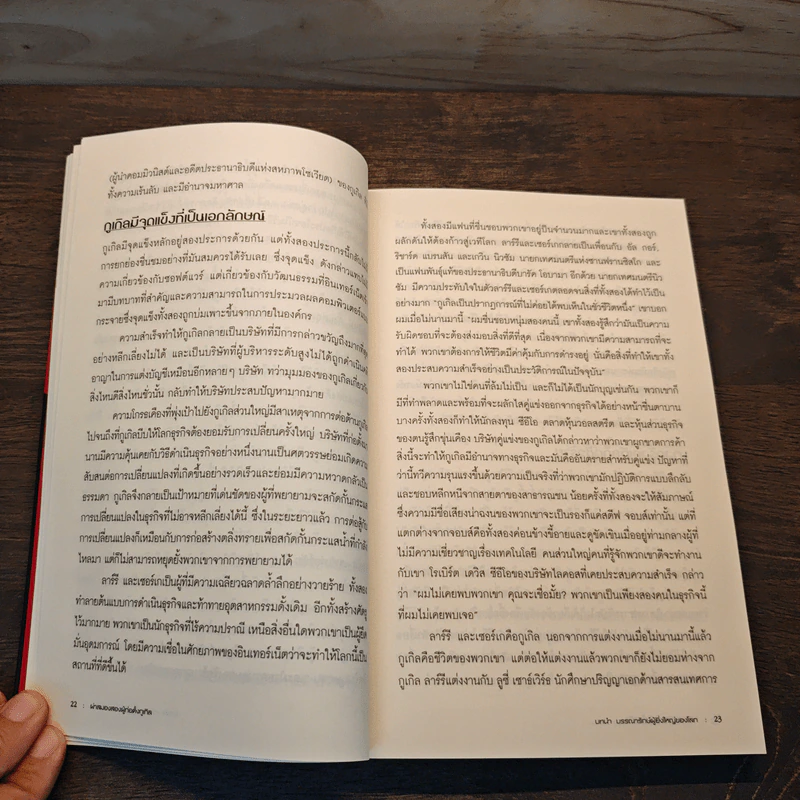 (ผู้นำคอมมิวนิสต์และอดีตประธานาธิบดีแห่งสหภาพโซเวียต) ของกูเกิล
ทั้งความเร้นลับ และมีอำนาจมหาศาล
กูเกิลมีจุดแข็งที่เป็นเอกลักษณ์
กูเกิลมีจุดแข็งหลักอยู่สองประการด้วยกัน แต่ทั้งสองประการนี้กลับ
การยกย่องชื่นชมอย่างที่มันสมควรได้รับเลย ซึ่งจุดแข็ง ดังกล่าว
ความเกี่ยวข้องกับซอฟต์แวร์ แต่เกี่ยวข้องกับวัฒนธรรมที่อินเทอร์เน็ต
มามีบทบาทที่สำคัญและความสามารถในการประมวลผลคอมพิวเตอร์
กระจายซึ่งจุดแข็งทั้งสองถูกบ่มเพาะขึ้นจากภายในองค์กร
ความสำเร็จทำให้กูเกิลกลายเป็นบริษัทที่มีการกล่าวขวัญถึงมากที่สุด
อย่างหลีกเลี่ยงไม่ได้ และเป็นบริษัทที่ผู้บริหารระดับสูงไม่ได้ถูกดำเนินคดี
อาญาในการแต่งบัญชีเหมือนอีกหลายๆ บริษัท ทว่ามุมมองของกูเกิลเกี่ยวกับ
สิ่งไหนดีสิ่งไหนชั่วนั้น กลับทำให้บริษัทประสบปัญหามากมาย
ความโกรธเคืองที่พุ่งเป้าไปยังกูเกิลส่วนใหญ่มีสาเหตุจากการต่อต้าน
ไปจนถึงที่กูเกิลบีบให้โลกธุรกิจต้องยอมรับการเปลี่ยนครั้งใหญ่ บริษัทที่ก่อตั้งมา
นานมีความคุ้นเคยกับวิธีดำเนินธุรกิจอย่างหนึ่งนานเป็นศตวรรษย่อมเกิดความ
สับสนต่อการเปลี่ยนแปลงที่เกิดขึ้นอย่างรวดเร็วและย่อมมีความหวาดกลัวเป็น
ธรรมดา กูเกิลจึงกลายเป็นเป้าหมายที่เด่นชัดของผู้ที่พยายามจะสกัดกั้นกระแส
การเปลี่ยนแปลงในธุรกิจที่ไม่อาจหลีกเลี่ยงได้นี้ ซึ่งในระยะยาวแล้ว การต่อสู้กับ
การเปลี่ยนแปลงก็เหมือนกับการก่อสร้างตลิ่งทรายเพื่อสกัดกั้นกระแสน้ำที่กำลัง
ไหลมา แต่ก็ไม่สามารถหยุดยั้งพวกเขาจากการพยายามได้
ลาร์รี และเซอร์เกเป็นผู้ที่มีความเฉลียวฉลาดล้ำลึกอย่างวายร้าย ทั้งสอง
ทำลายต้นแบบการดำเนินธุรกิจและท้าทายอุตสาหกรรมดั้งเดิม อีกทั้งสร้างศัตรู
ไว้มากมาย พวกเขาเป็นนักธุรกิจที่ไร้ความปรานี เหนือสิ่งอื่นใดพวกเขาเป็นผู้ยึด
มั่นอุดมการณ์ โดยมีความเชื่อในศักยภาพของอินเทอร์เน็ตว่าจะทำให้โลกนี้เป็น
สถานที่ที่ดีขึ้นได้
22 : ผ่าสมองสองผู้ก่อตั้งกูเกิล
ทั้งสองมีแฟนที่ชื่นชอบพวกเขาอยู่เป็นจำนวนมากและเขาทั้งสองถูก
ผลักดันให้ต้องก้าวสู่เวทีโลก ลาร์รีและเซอร์เกกลายเป็นเพื่อนกับ อัล กอร์,
ริชาร์ด แบรนสัน และเกวิน นิวซัม นายกเทศมนตรีแห่งซานฟรานซิสโก และ
เป็นแฟนพันธุ์แท้ของประธานาธิบดีบารัค โอบามา อีกด้วย นายกเทศมนตรีนิว
ซัม มีความประทับใจในตัวลาร์รีและเซอร์เกตลอดจนสิ่งที่ทั้งสองได้ทำไว้เป็น
อย่างมาก "กูเกิลเป็นปรากฏการณ์ที่ไม่ค่อยได้พบเห็นในชั่วชีวิตหนึ่ง" เขาบอก
ผมเมื่อไม่นานมานี้ "ผมชื่นชอบหนุ่มสองคนนี้ เขาทั้งสองรู้สึกว่ามันเป็นความ
รับผิดชอบที่จะต้องส่งมอบสิ่งที่ดีที่สุด เนื่องจากพวกเขามีความสามารถที่จะ
ทำได้ พวกเขาต้องการให้ชีวิตมีค่าคุ้มกับการดำรงอยู่ นั่นคือสิ่งที่ทำให้เขาทั้ง
สองประสบความสำเร็จอย่างเป็นประวัติการณ์ในปัจจุบัน"
พวกเขาไม่ใช่คนที่ลืมไม่เป็น และก็ไม่ได้เป็นนักบุญเช่นกัน พวกเขาก็
มีที่ท่าพลาดและพร้อมที่จะผลักไสคู่แข่งออกจากธุรกิจได้อย่างหน้าชื่นตาบาน
บางครั้งทั้งสองก็ทำให้นักลงทุน ซีอีโอ ตลาดหุ้นวอลสตรีต และหุ้นส่วนธุรกิจ
ของตนรู้สึกขุ่นเคือง บริษัทคู่แข่งของกูเกิลได้กล่าวหาว่าพวกเขาผูกขาดการค้า
สิ่งนี้จะทำให้กูเกิลมีอำนาจทางธุรกิจและมันคืออันตรายสำหรับคู่แข่ง ปัญหาที่
ว่านี้ทวีความรุนแรงขึ้นด้วยความเป็นจริงที่ว่าพวกเขามักปฏิบัติการแบบลึกลับ
และชอบหลีกหนีจากสายตาของสาธารณชน น้อยครั้งที่ทั้งสองจะให้สัมภาษณ์
ซึ่งความมีชื่อเสียงน่าฉงนของพวกเขาจะเป็นรองก็แค่สตีฟ จอบส์เท่านั้น แต่ที่
แตกต่างจากจอบส์คือทั้งสองค่อนข้างขี้อายและดูขัดเขินเมื่ออยู่ท่ามกลางผู้ที่
ไม่มีความเชี่ยวชาญเรื่องเทคโนโลยี คนส่วนใหญ่คนที่รู้จักพวกเขาดีจะทำงาน
กับเขา โรเบิร์ต เดวิส ซีอีโอของบริษัทไลคอสที่เคยประสบความสำเร็จ กล่าว
ว่า "ผมไม่เคยพบพวกเขา คุณจะเชื่อมั้ย? พวกเขาเป็นเพียงสองคนในธุรกิจนี้
ที่ผมไม่เคยพบเจอ"
ลาร์รี และเซอร์เกคือกูเกิล นอกจากการแต่งงานเมื่อไม่นานมานี้แล้ว
กูเกิลคือชีวิตของพวกเขา แต่ต่อให้แต่งงานแล้วพวกเขาก็ยังไม่ยอมห่างจาก
กูเกิล ลาร์รีแต่งงานกับ ลูซี่ เซาธ์เวิร์ธ นักศึกษาปริญญาเอกด้านสารสนเทศการ
บทนำ บรรณารักษ์ผู้ยิ่งใหญ่ของโลก : 23